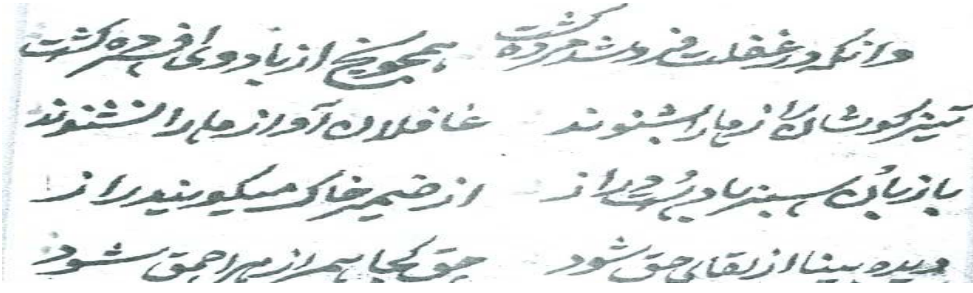 وانکه در غفلت فرو شد مرده گشت همچو یخ از باد وی افسرده گشت
تیز کوشان راز ما را بشنوند غافلان آواز ما را نشنوند
با زبان سبز با دست دراز از ضمیر خاک میکویند راز
دیده بینا از لقای حق شود حق کجا همراز هر احمق شود